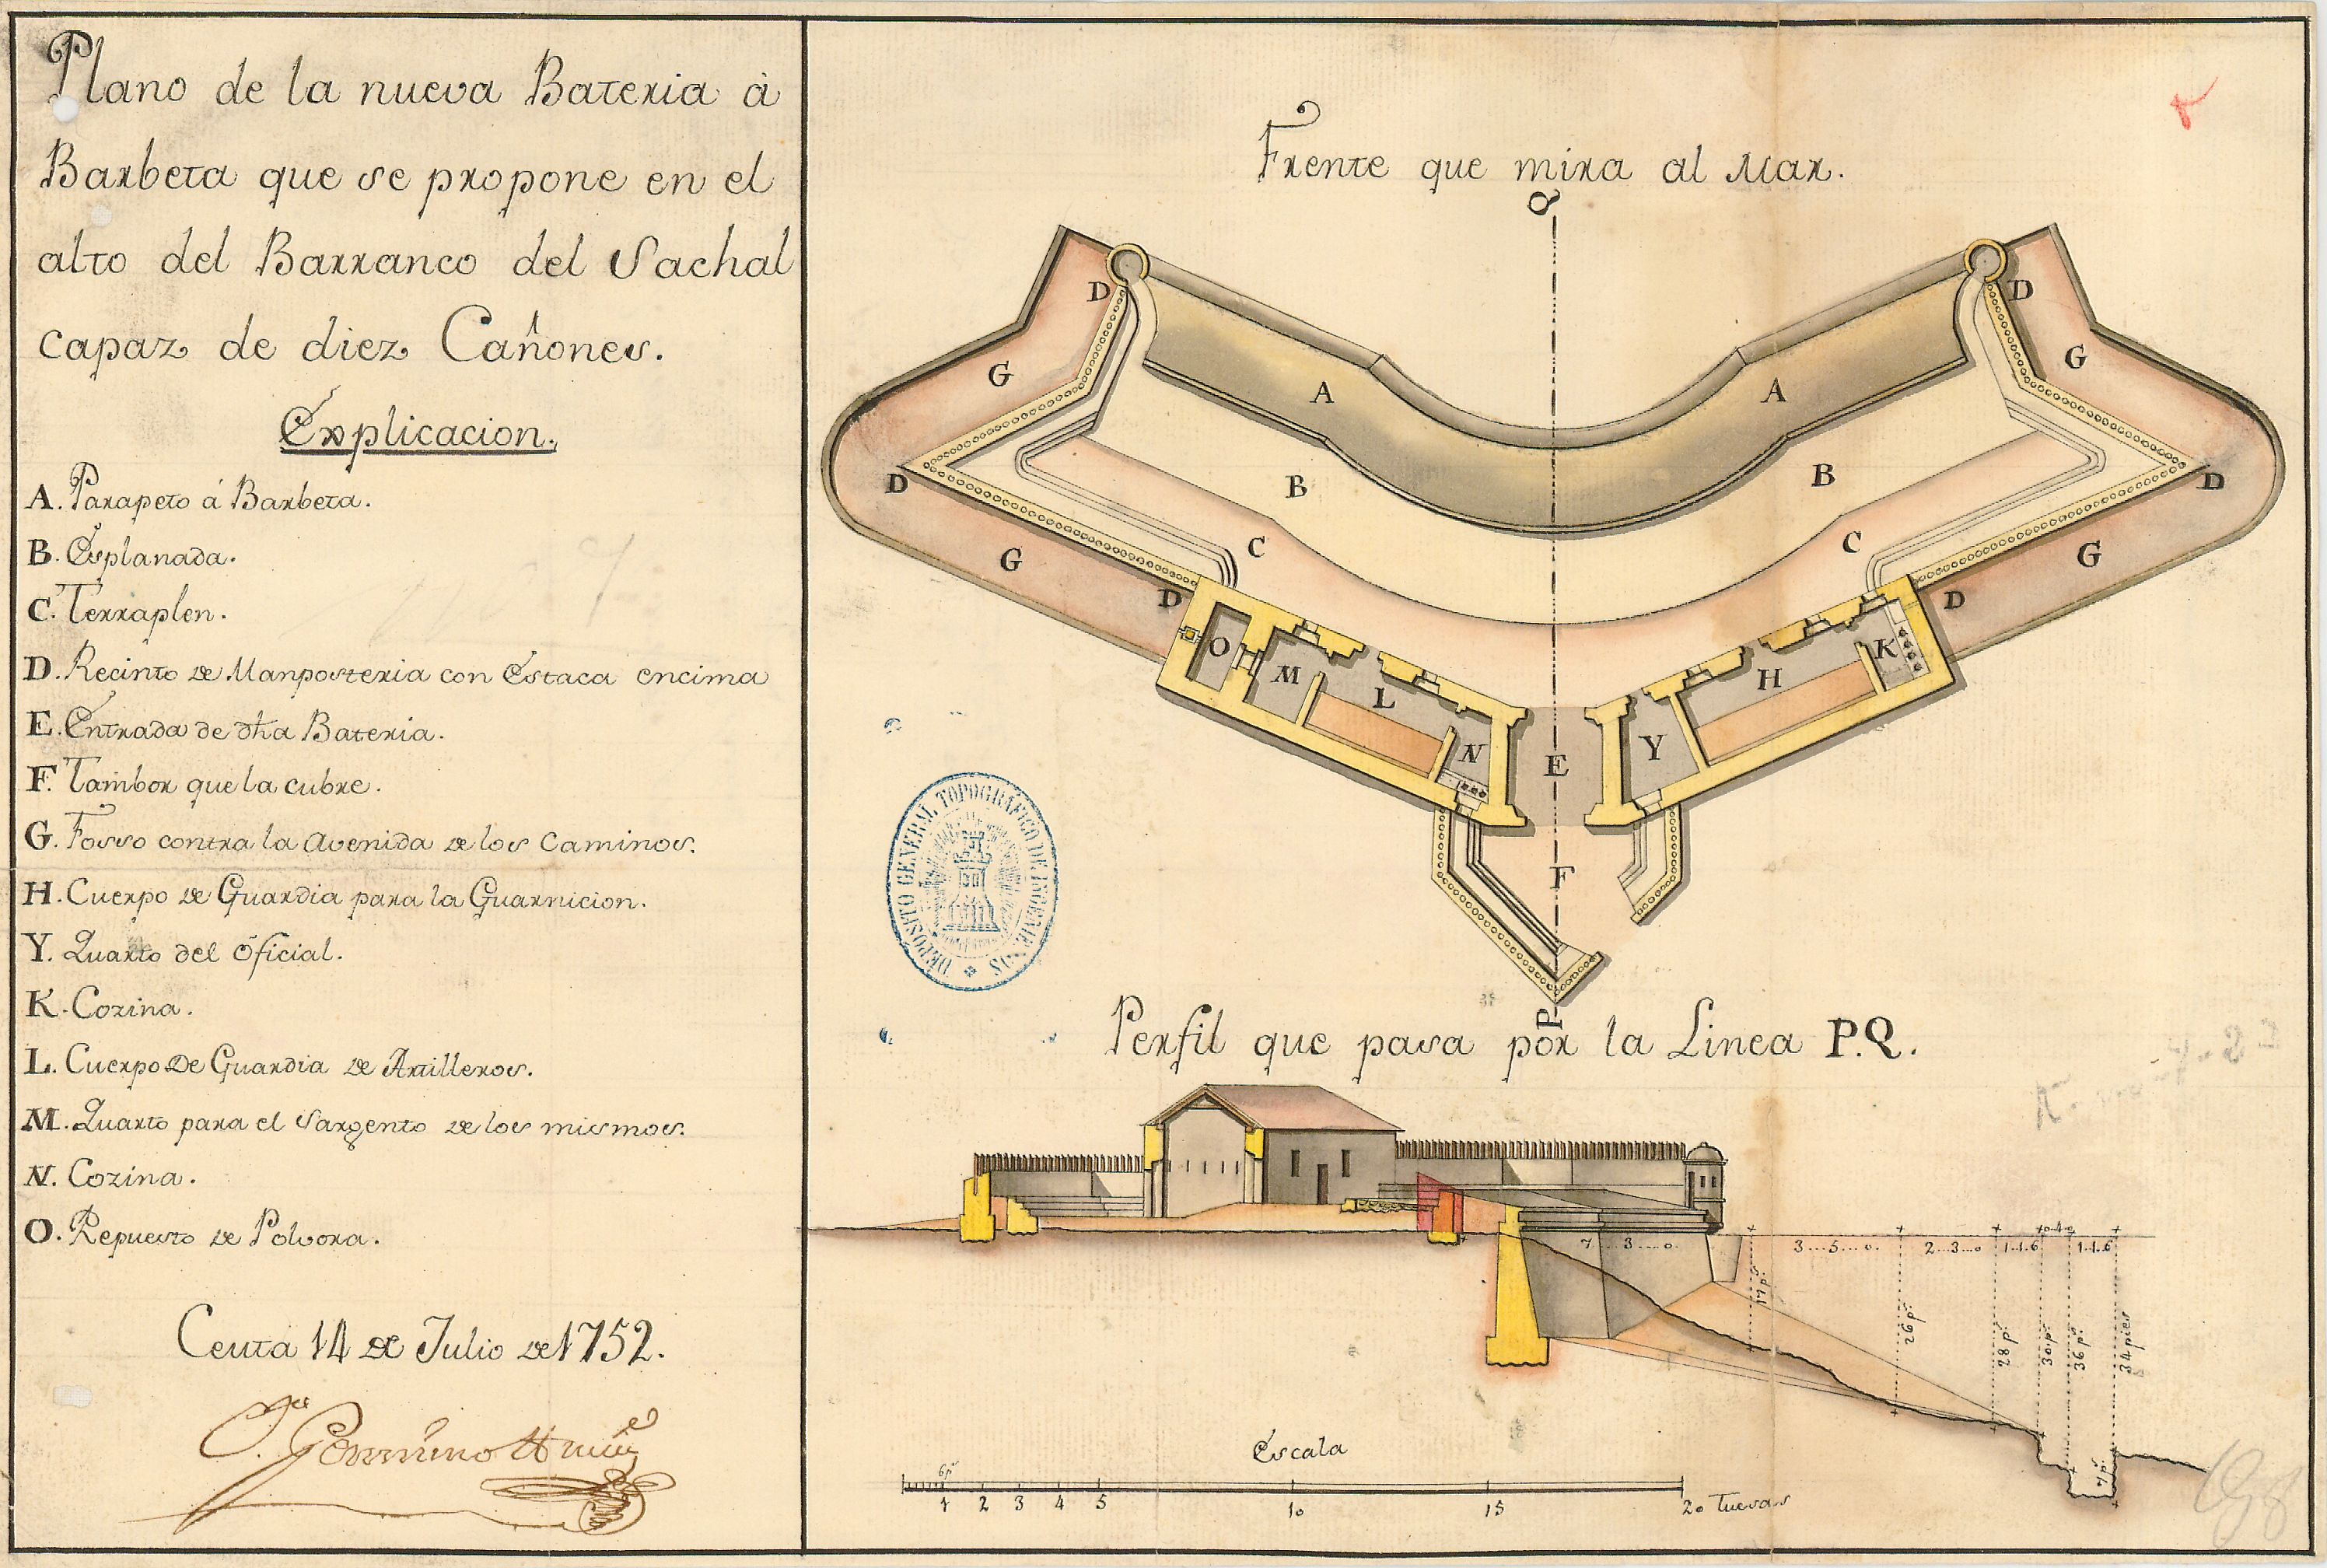 Plano de la nueva Bateria à
Barbeta que se propone en el
alto del Barranco del Sachal
capaz de diez Cañones.
Explicacion.
A. Parapeto á Barbeta.
B. Esplanada.
C. Terraplen.
D. Recinto de Manposteria con Estaca encima
E. Entrada de dha Bateria.
F. Tambor que la cubre.
G. Fosso contra la Avenida de los Caminos.
H. Cuerpo de Guardia para la Guarnicion.
Y. Quarto del Oficial.
K. Cozina.
L. Cuerpo De Guardia de Artilleros.
M. Quarto para el Sargento de los mismos.
N. Cozina.
O. Repuesto de Polvora.
Ceuta 14 de Julio de 1752.
Frente que mira al Mar.
Q
D D
G A A G
D B B D
G C C G
D D
O M L N E Y H K
F
P
DEPOSITO GENERAL TOPOGRÁFICO DE INGENIEROS
Perfil que pasa por la Linea P.Q.
7...3...0. 3...5...0. 2...3...0 1.1.6 0.4.0 1.1.6
17 ps 26 ps 28 ps 30 ps 36 ps 34 pies
7 ps
Escala
6 ps
1 2 3 4 5 10 15 20 Tuesas